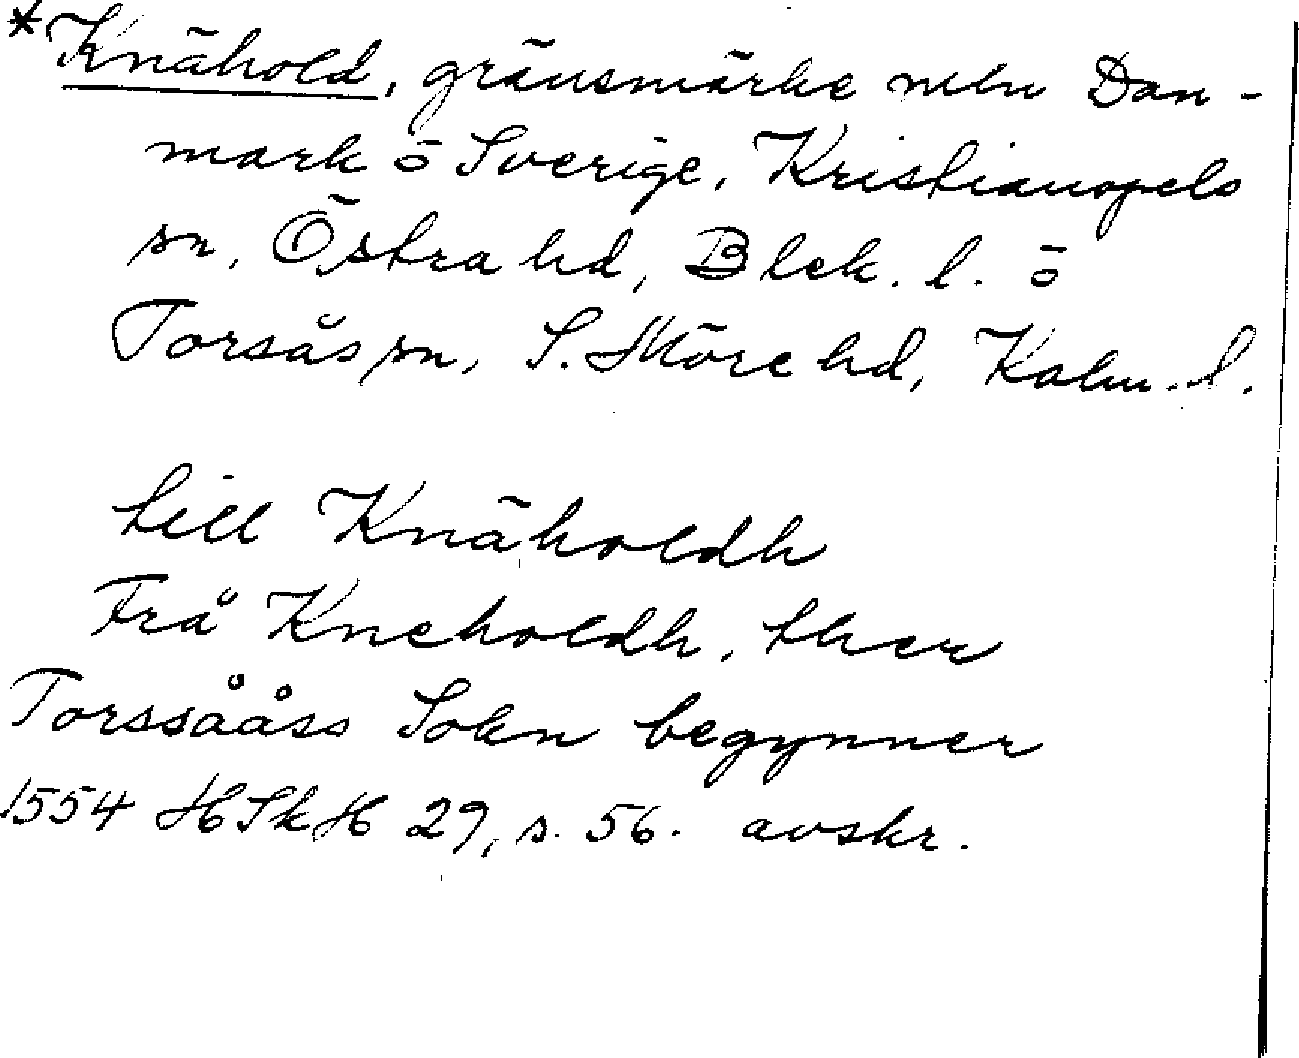 *Knähold, gränsmärke mln Dan-
mark o Sverige, Kristianopels
sn, Östra hd, Blek. l. o
Torsås sn, S. Möre hd, Kalm. l.
till Knähåldh
Frå Kneholdh, ther
Torssååss Sokn begynner
1554 HSkH 29, s. 56. avskr.